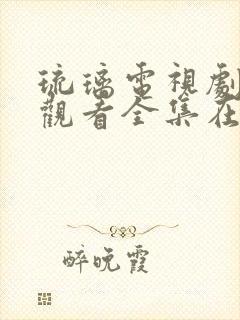 琉璃電視劇
觀看全集在
醉晚霞